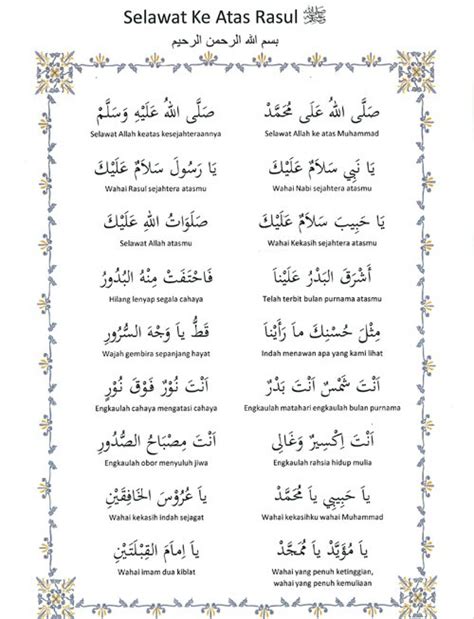 Selawat Ke Atas Rasul ﷺ
بسم الله الرحمن الرحيم
صَلَّى اللهُ عَلَى مُحَمَّدْ
Selawat Allah ke atas Muhammad
صَلَّى اللهُ عَلَيْهِ وَسَلَّمْ
Selawat Allah keatas kesejahteraannya
يَا نَبِي سَلَامٌ عَلَيْكَ
Wahai Nabi sejahtera atasmu
يَا رَسُولَ سَلَامٌ عَلَيْكَ
Wahai Rasul sejahtera atasmu
يَا حَبِيبَ سَلَامٌ عَلَيْكَ
Wahai Kekasih sejahtera atasmu
صَلَوَاتُ اللهِ عَلَيْكَ
Selawat Allah atasmu
أَشْرَقَ الْبَدْرُ عَلَيْنَا
Telah terbit bulan purnama atasmu
فَاخْتَفَتْ مِنْهُ الْبُدُورُ
Hilang lenyap segala cahaya
مِثْلَ حُسْنِكَ مَا رَأَيْنَا
Indah menawan apa yang kami lihat
قَطُّ يَا وَجْهَ السُّرُورِ
Wajah gembira sepanjang hayat
اَنْتَ شَمْسٌ اَنْتَ بَدْرٌ
Engkaulah matahari engkaulah bulan purnama
اَنْتَ نُوْرٌ فَوْقَ نُوْرٍ
Engkaulah cahaya mengatasi cahaya
اَنْتَ اِكْسِيرٌ وَغَالِى
Engkaulah rahsia hidup mulia
اَنْتَ مِصْبَاحُ الصُّدُورِ
Engkaulah obor menyuluh jiwa
يَا حَبِيبِي يَا مُحَمَّدْ
Wahai kekasihku wahai Muhammad
يَا عَرُوْسَ الْخَافِقَيْنِ
Wahai kekasih indah sejagat
يَا مُؤَيَّدْ يَا مُمَجَّدْ
Wahai yang penuh ketinggian,
wahai yang penuh kemuliaan
يَا اِمَامَ الْقِبْلَتَيْنِ
Wahai imam dua kiblat